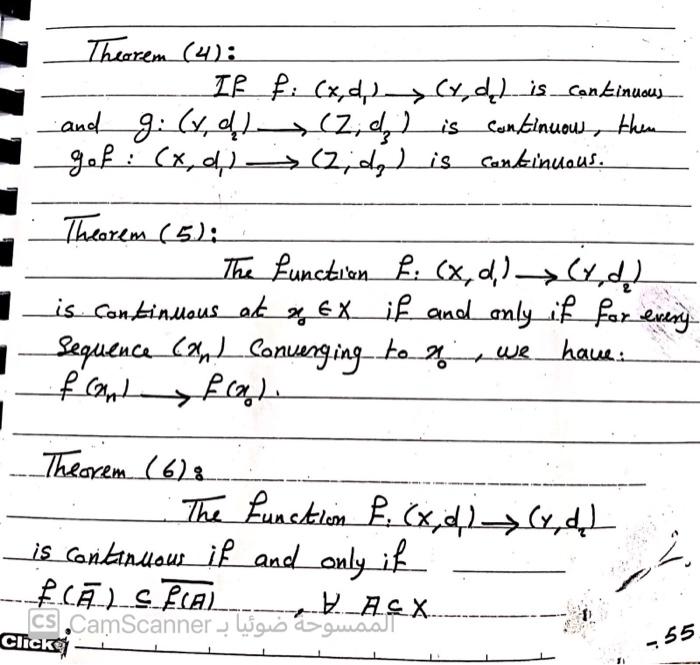 Theorem (4):
If f: (X,d₁) → (Y,d₂) is continuous
and g: (Y,d₂) → (Z,d₃) is continuous, then
gof : (X,d₁) → (Z,d₃) is continuous.
Theorem (5):
The function f: (X,d₁) → (Y,d₂)
is continuous at x₀ ∈ X if and only if for every
sequence (xₙ) converging to x₀, we have:
f(xₙ) → f(x₀).
Theorem (6):
The function f: (X,d₁) → (Y,d₂)
is continuous if and only if
f(Ā) ⊆ \overline{f(A)}, ∀ A ⊆ X
CS الممسوحة ضوئيا بـ CamScanner
Click
-55